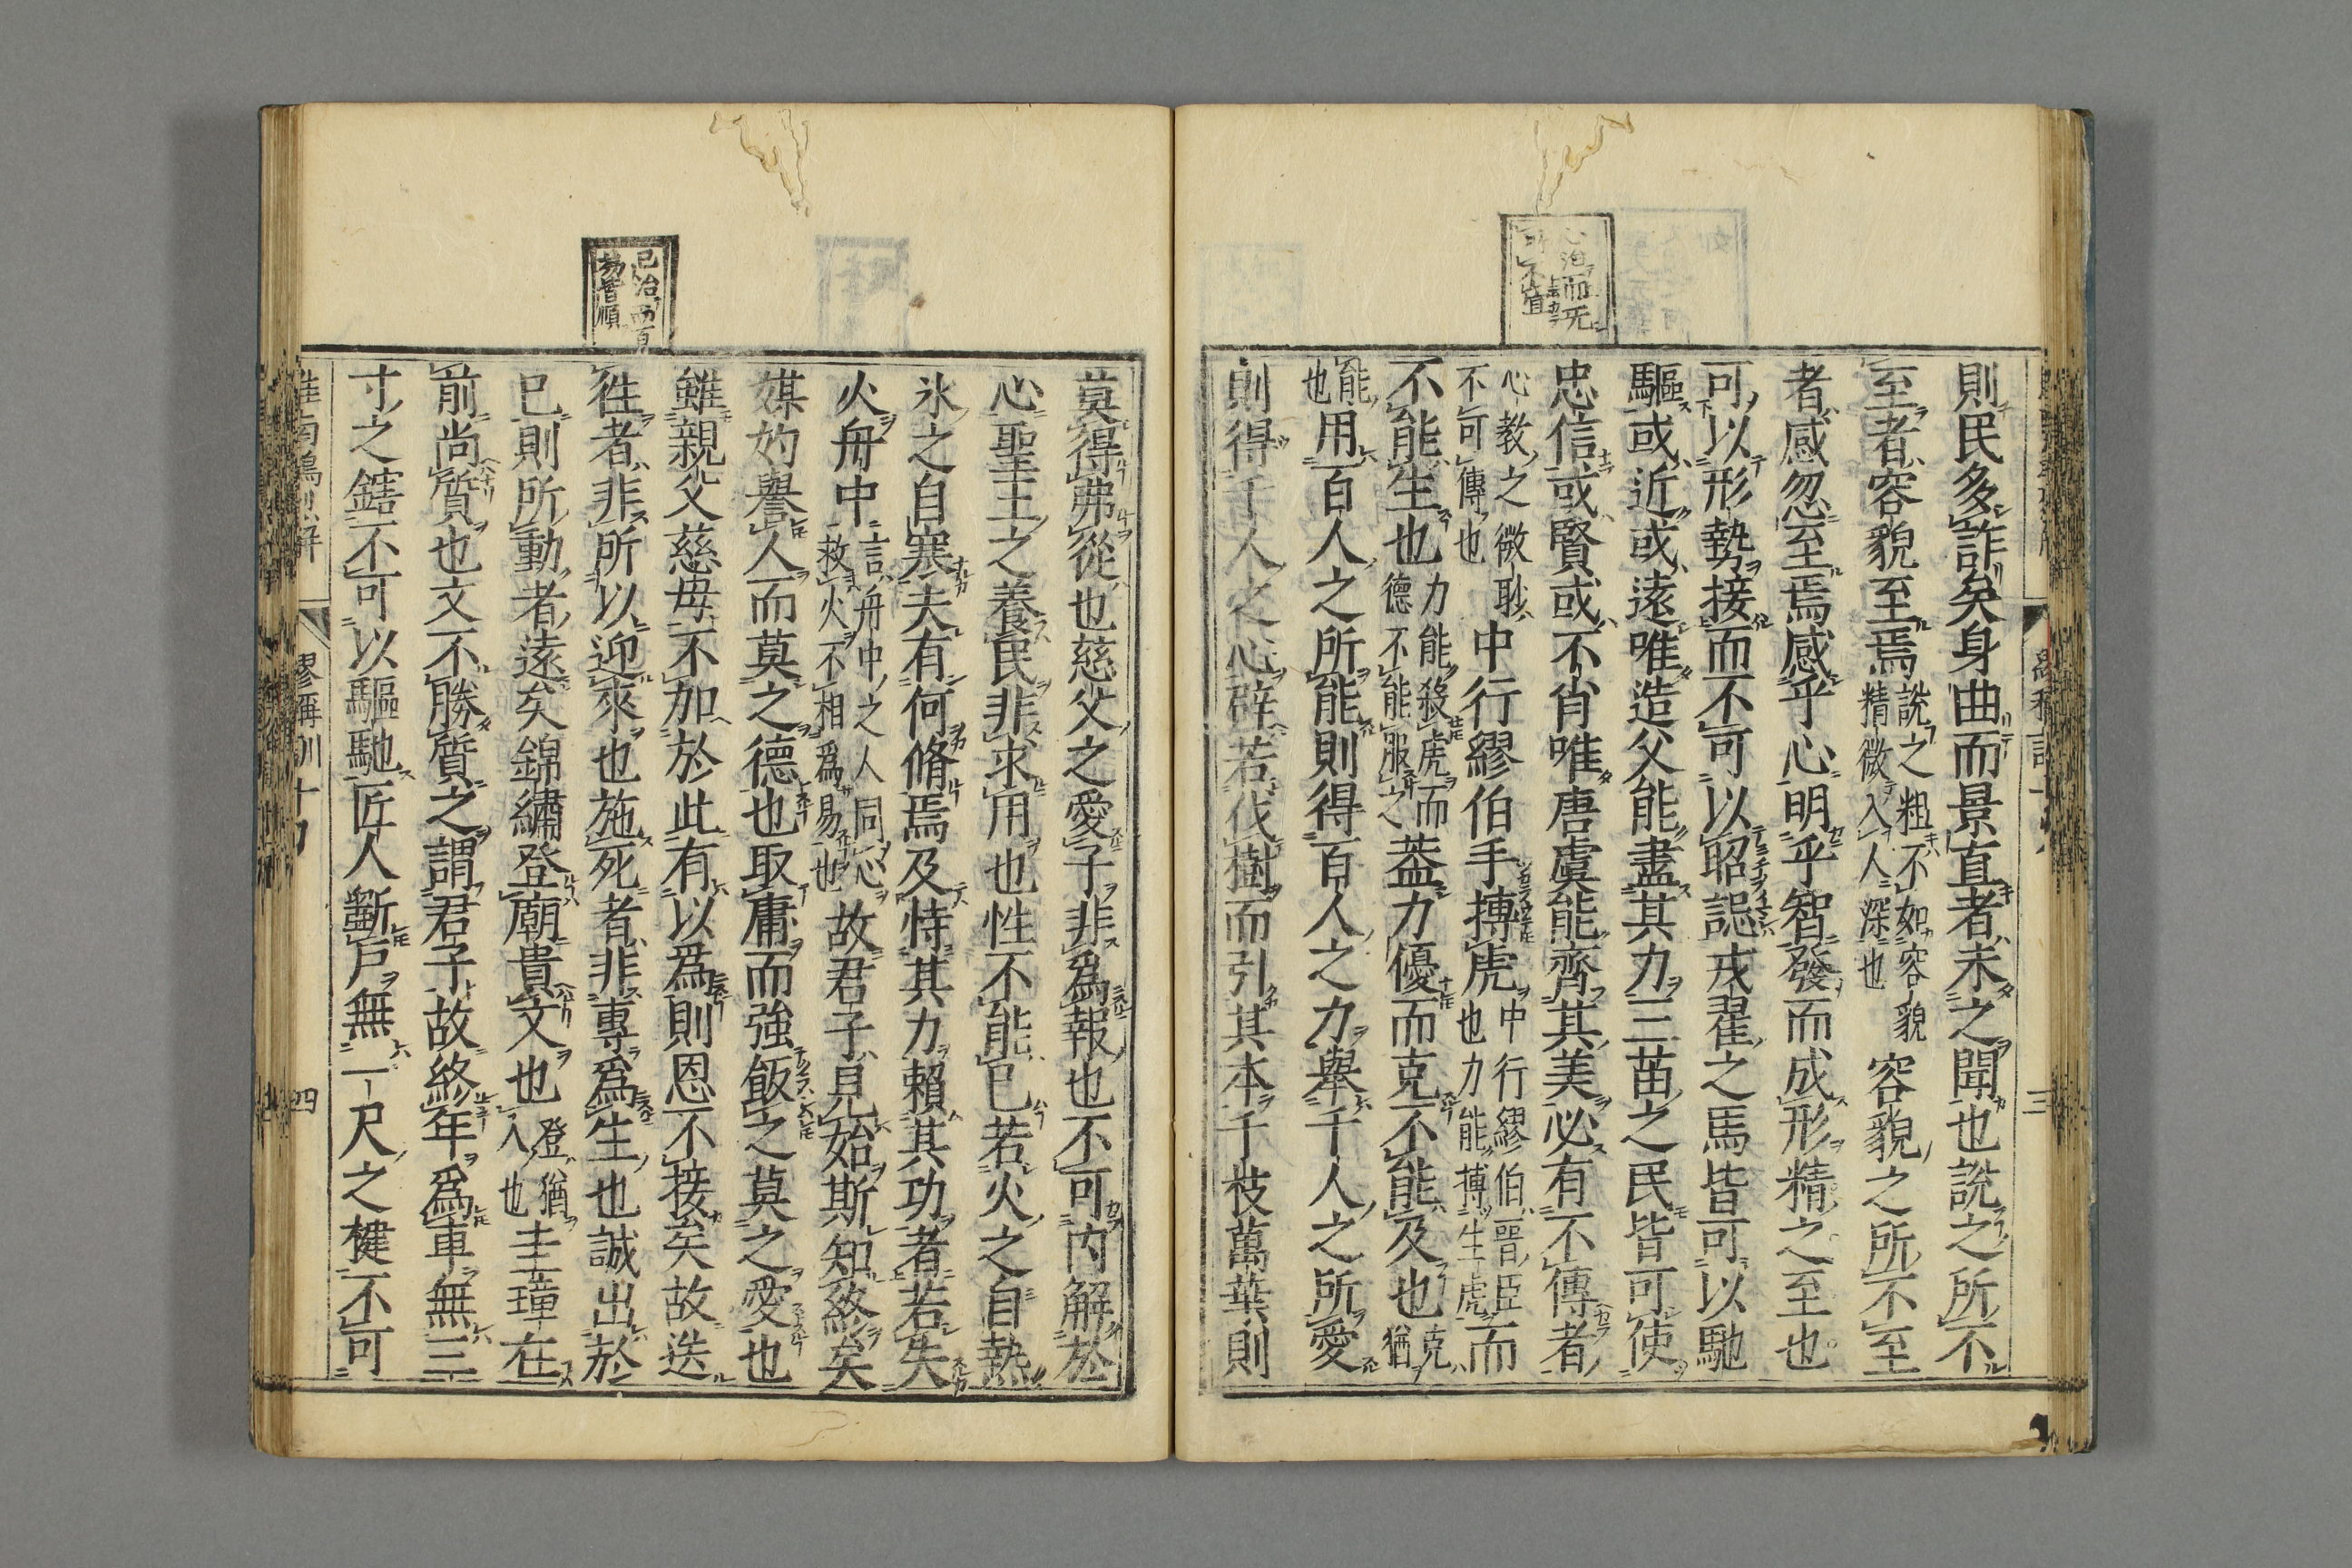 心治而无
可不宜
則民多詐矣身曲而景直者未之聞也説之所不
至者容貌至焉説之粗不如容貌精微入人深也容貌之所不至
者感忽至焉感乎心明乎智發而成形精之至也
可以形勢接而不可以昭誋戎翟之馬皆可以馳
驅或近或遠唯造父能盡其力三苗之民皆可使
忠信或賢或不肖唯唐虞能齊其美必有不傳者
心教之微眇不可傳也中行繆伯手搏虎中行繆伯晋臣也力能搏生虎而
不能生也力能殺虎而德不能服之葢力優而克不能及也克猶
能也用百人之所能則得百人之力舉千人之所愛
則得千人之心辟若伐樹而引其本千枝萬葉則
三
己治而百
芴皆順
莫得弗從也慈父之愛子非為報也不可内解於
心聖王之養民非求用也性不能已若火之自熱
氷之自寒夫有何脩焉及恃其力賴其功者若失
火舟中言舟中之人同心救火不相為易也故君子見始斯知終矣
媒妁譽人而莫之德也取庸而強飯之莫之愛也
雖親父慈母不加於此有以為則恩不接矣故送
徃者非所以迎來也施死者非專為生也誠出於
已則所動者遠矣錦繡登廟貴文也登猶入也圭璋在
前尚質也文不勝質之謂君子故終年為車無三
寸之鎋不可以驅馳匠人斷戸無一尺之楗不可
淮南鴻烈解
繆稱訓十
四